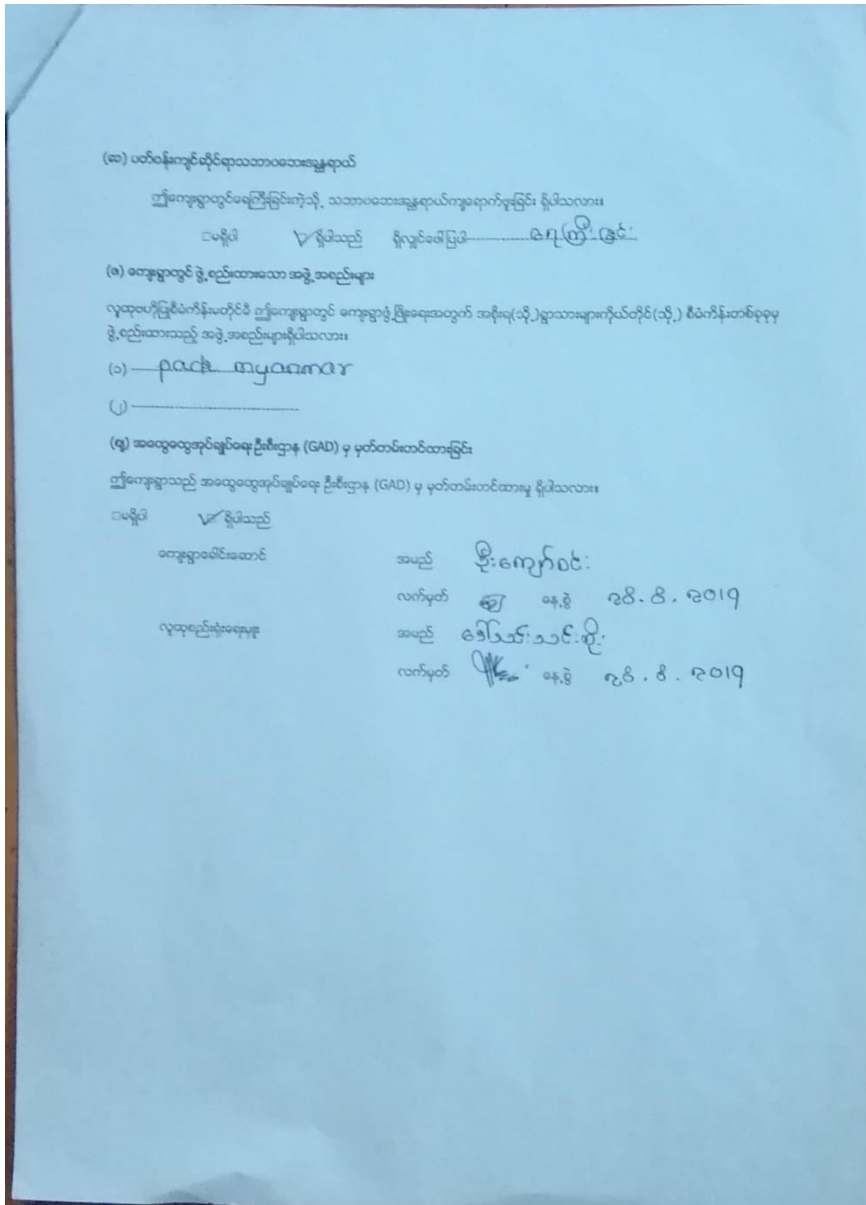 (ဆ) ပတ်ဝန်းကျင်ဆိုင်ရာသဘာဝဘေးအန္တရာယ်
ဤကျေးရွာတွင်ရေကြီးခြင်းကဲ့သို့ သဘာဝဘေးအန္တရာယ်ကျရောက်ဖူးခြင်း ရှိပါသလား။
မရှိပါ ရှိပါသည် ရှိလျှင်ဖေါ်ပြပါ ရေကြီးခြင်း
(ဇ) ကျေးရွာတွင် ဖွဲ့စည်းထားသော အဖွဲ့အစည်းများ
လူထုဗဟိုပြုစီမံကိန်းမတိုင်မီ ဤကျေးရွာတွင် ကျေးရွာဖွံ့ဖြိုးရေးအတွက် အစိုးရ(သို့)ရွာသားများကိုယ်တိုင်(သို့) စီမံကိန်းတစ်ခုခုမှ
ဖွဲ့စည်းထားသည့် အဖွဲ့အစည်းများရှိပါသလား။
(၁) pack myanmar
(၂)
(ဈ) အထွေထွေအုပ်ချုပ်ရေးဦးစီးဌာန (GAD) မှ မှတ်တမ်းတင်ထားခြင်း
ဤကျေးရွာသည် အထွေထွေအုပ်ချုပ်ရေး ဦးစီးဌာန (GAD) မှ မှတ်တမ်းတင်ထားမှု ရှိပါသလား။
မရှိပါ ရှိပါသည်
ကျေးရွာခေါင်းဆောင် အမည် ဦးကျော်ဝင်း
လက်မှတ် နေ့စွဲ 28.8.2019
လူထုစည်းရုံးရေးမှူး အမည် ဒေါ်သင်းသင်းစိုး
လက်မှတ် နေ့စွဲ 28.8.2019